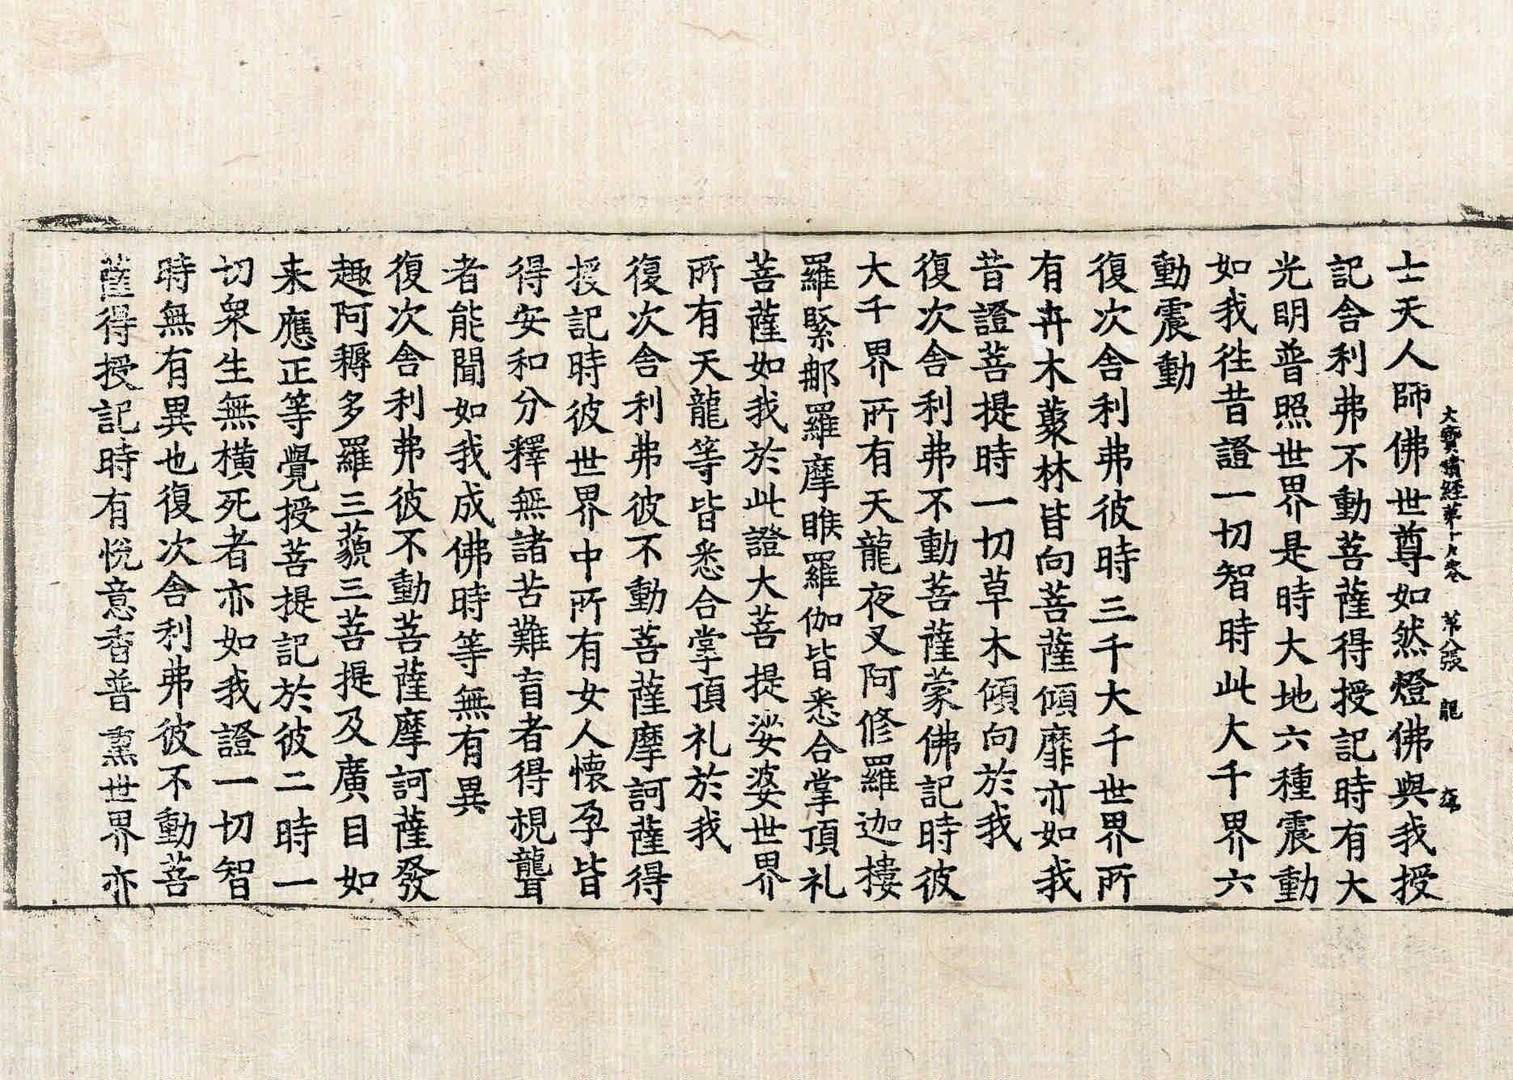 大寶積經第十九卷 第八張 龍
士天人師佛世尊如然燈佛與我授
記舎利弗不動菩薩得授記時有大
光明普照世界是時大地六種震動
如我徃昔證一切智時此大千界六
動震動
復次舎利弗彼時三千大千世界所
有卉木藂林皆向菩薩傾靡亦如我
昔證菩提時一切草木傾向於我
復次舎利弗不動菩薩蒙佛記時彼
大千界所有天龍夜叉阿修羅迦樓
羅緊那羅摩睺羅伽皆悉合掌頂礼
菩薩如我於此證大菩提娑婆世界
所有天龍等皆悉合掌頂礼於我
復次舎利弗彼不動菩薩摩訶薩得
授記時彼世界中所有女人懷孕皆
得安和分釋無諸苦難盲者得視聾
者能聞如我成佛時等無有異
復次舎利弗彼不動菩薩摩訶薩發
趣阿耨多羅三藐三菩提及廣目如
来應正等覺授菩提記於彼二時一
切衆生無橫死者亦如我證一切智
時無有異也復次舎利弗彼不動菩
薩得授記時有悅意香普熏世界亦